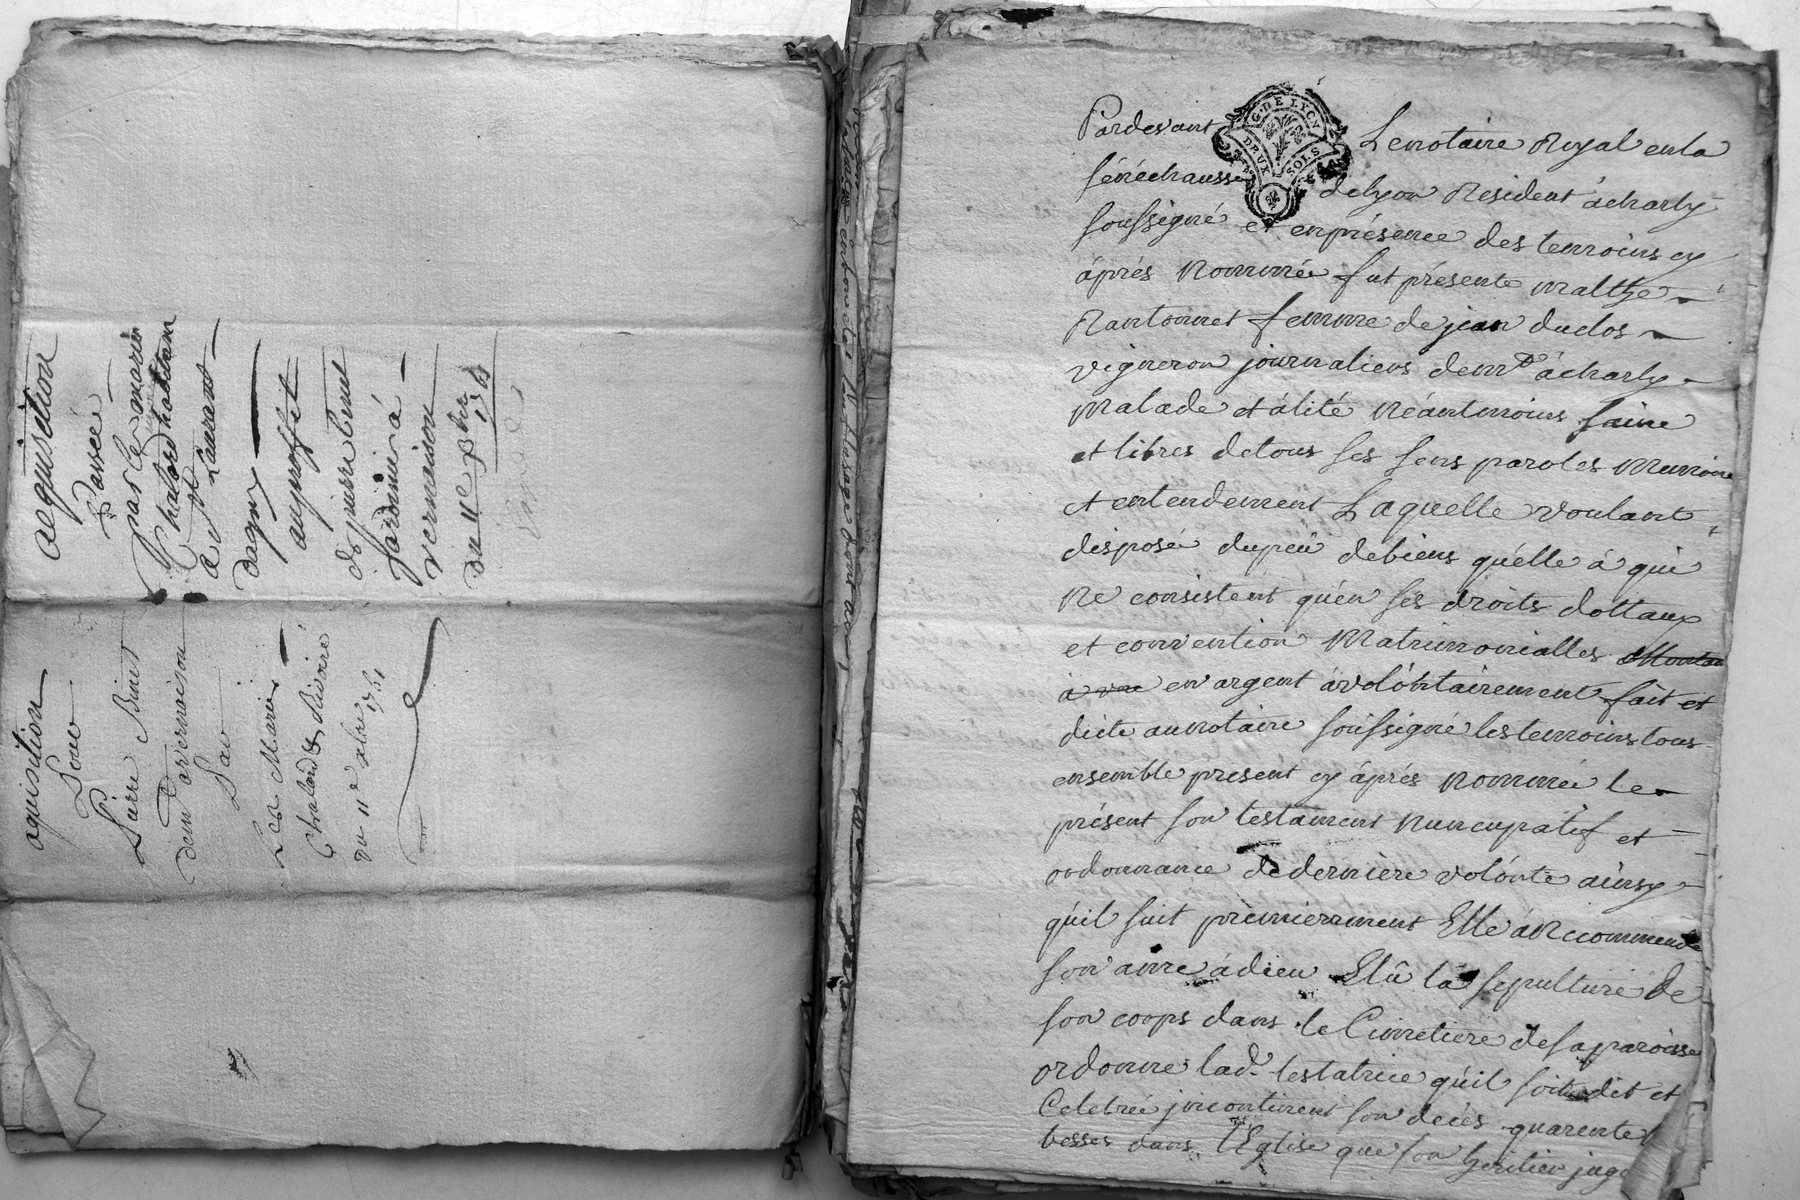 acquisition
Passée
par les mariés
Chalard habitans
a St Laurant
dagny
au proffit
de pierre binet
vernaison
du 11e 8bre
1751
aquisition
Pour
Pierre Binet
dem a vernaison
Les Mariés
Chalard &
du 11e 8bre 1751
G. DE LYON
DEUX SOLS
Pardevant Le notaire Royal en la
sénéchaussée de lyon Résident à charly
soussigné et en présence des temoins cy
áprés Nommée fut présente malthe
Rantonnet femme de jean duclos
vigneron journaliers demt à charly
Malade et álité Néantmoins saine
et libres de tous ses sens paroles Memoire
et entendement Laquelle voulant
disposé du peü de biens qu'elle á qui
Ne consistent qu'en ses droits dottaux
et convention Matrimonialles
en argent á volóntairement fait et
dicte au notaire soussigné les temoins tous
ensemble present cy áprés Nommée le
présent son testament Nuncupatif et
ordonnance de derniere volónte ainsy
qu'il suit premierement Elle á Recommende
son ame á dieu Elû la sepulture de
son coops dans le Cimetiere de sa paroisse
ordonne lad. testatrice qu'il soit dit et
Celebrée jncontinent son decés quarente
besses dans l'Eglise que son heritier juge